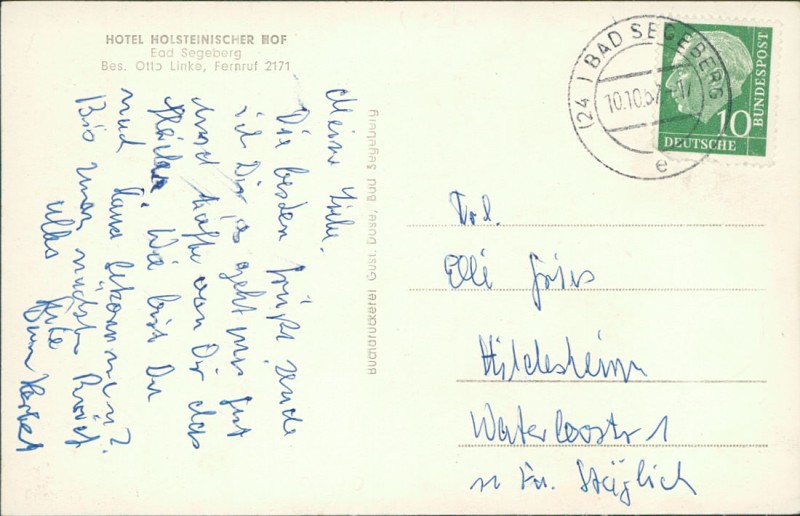 HOTEL HOLSTEINISCHER HOF
Bad Segeberg
Bes. Otto Linke, Fernruf 2171
Meine Liebe.
Die besten Grüße sende
ich Dir, es geht mir gut
und hoffe von Dir das
Gleiche. Wie bist Du
nach Hause gekommen?
Bis zum nächsten Brief
alles Gute
Dein
Buchdruckerei Gust. Duse, Bad Segeberg
(24) BAD SEGEBERG
10.10.57
e
10
DEUTSCHE
BUNDESPOST
Frl.
Elli Fries
Hildesheim
Waterloostr 1